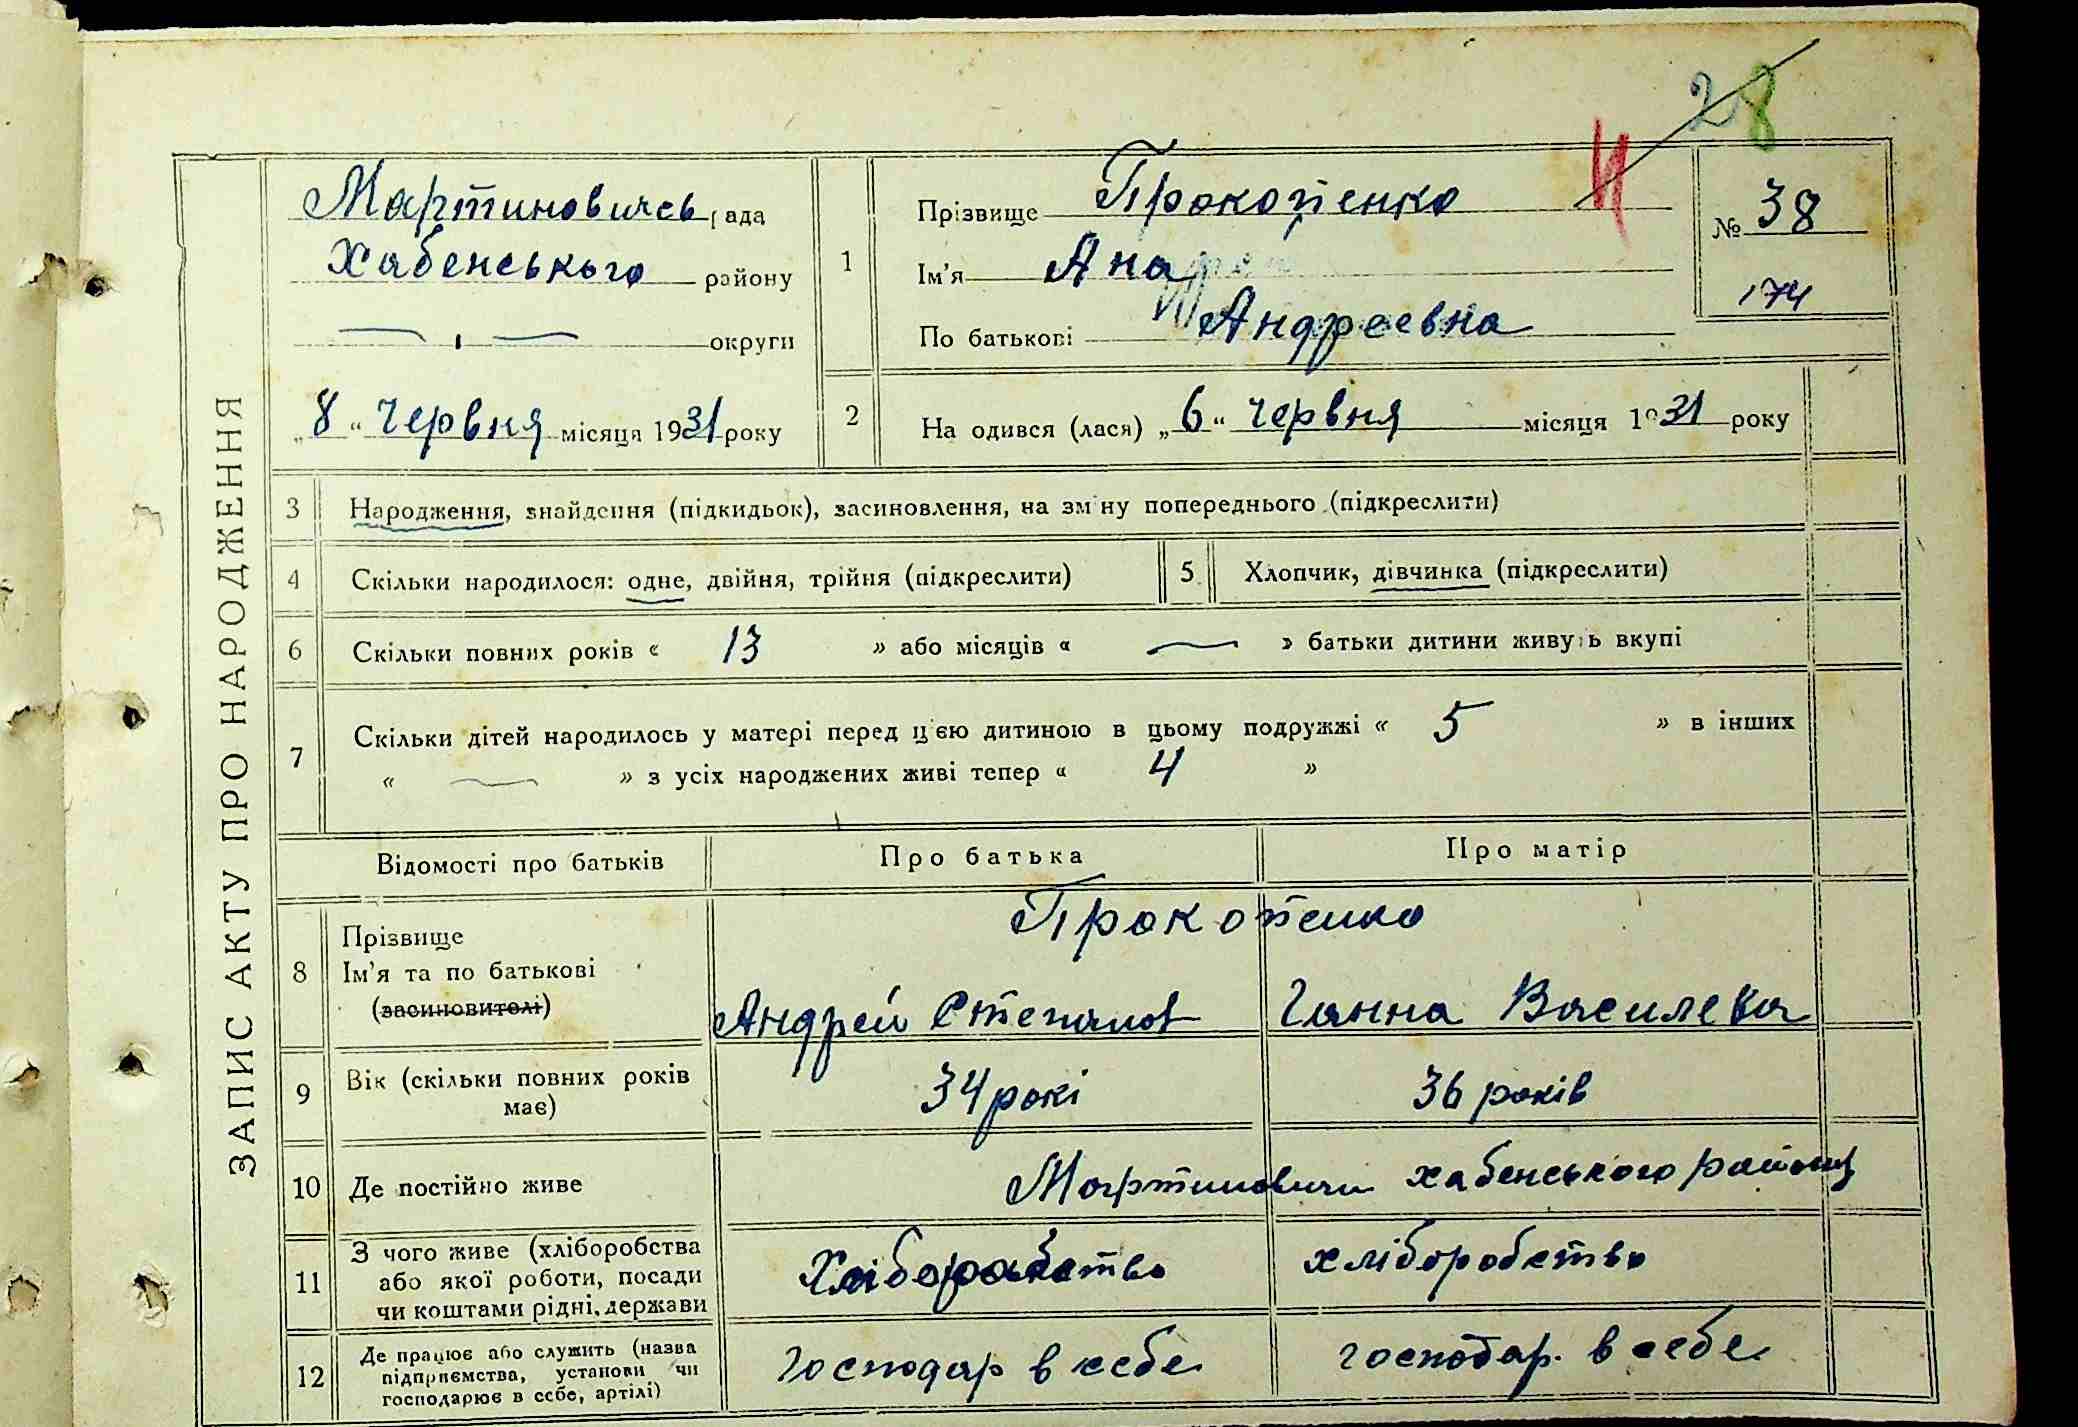 28
И
ЗАПИС АКТУ ПРО НАРОДЖЕННЯ
Мартиновичсь рада
Хабенського району
— , — округи
„8“ Червня місяця 1931 року
1
Прізвище Прокопенко
Ім'я Ана
По батькові Андреевна
№ 38
174
2
На одився (лася) „6“ Червня місяця 1931 року
3 Народження, знайдення (підкидьок), засиновлення, на зміну попереднього (підкреслити)
4 Скільки народилося: одне, двійня, трійня (підкреслити) 5 Хлопчик, дівчинка (підкреслити)
6 Скільки повних років « 13 » або місяців « — » батьки дитини живуть вкупі
7 Скільки дітей народилось у матері перед цією дитиною в цьому подружжі « 5 » в інших
« — » з усіх народжених живі тепер « 4 »
Відомості про батьків Про батька Про матір
8 Прізвище
Ім'я та по батькові
(засиновителі)
Прокопенко
Андрей Степанов Ганна Василева
9 Вік (скільки повних років
має)
34 рокі 36 років
10 Де постійно живе Мартиновичи Хабенського району
11 З чого живе (хліборобства
або якої роботи, посади
чи коштами рідні, держави
Хліборобство хліборобство
12 Де працює або служить (назва
підприємства, установи чи
господарює в себе, артілі)
Господар в себе господар. в себе